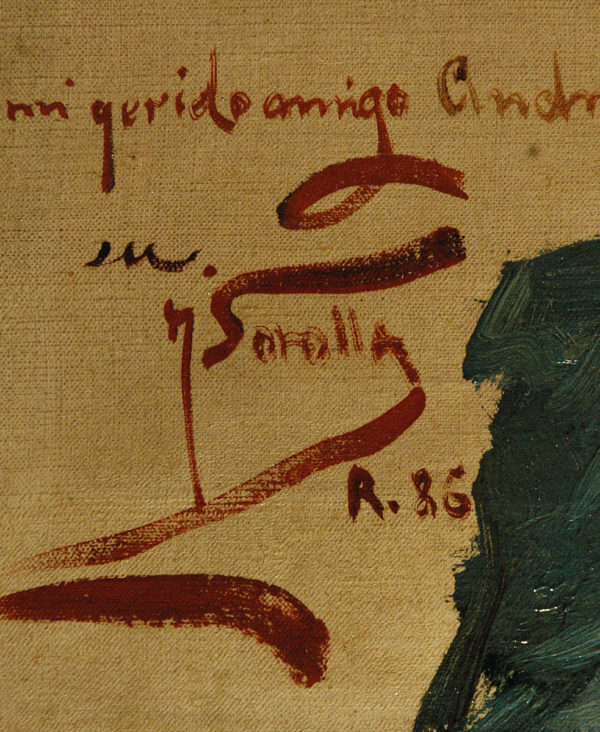 mi qerido amigo Andr
su
J Sorolla
R. 86